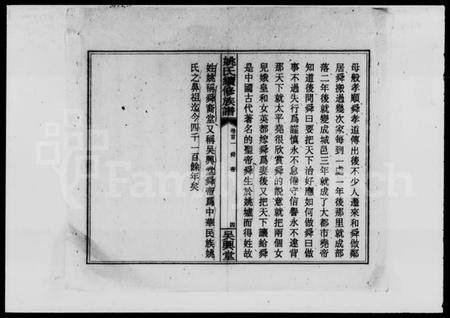 母般孝順舜孝道傳出後不少人遷來和舜做鄰
居舜搬過幾次家每到一處一年後那里就成部
落二年後就變成城邑三年就成了大都市堯帝
知道後問舜曰要把天下治好應如何做舜曰做
事不過失行爲謹慎永不怠倦守信譽永不違背
那天下就太平堯很欣賞舜的說意就把兩個女
兒娥皇和女英都嫁舜爲妻後又把天下讓給舜
是中國古代著名的聖帝舜生於姚墟而得姓故
姓姚稱舜裔堂又稱吳興堂舜帝爲中華民族姚
氏之鼻祖迄今四千一百餘年矣
姚氏續修族譜
卷首 一 舜帝
四
吳興堂